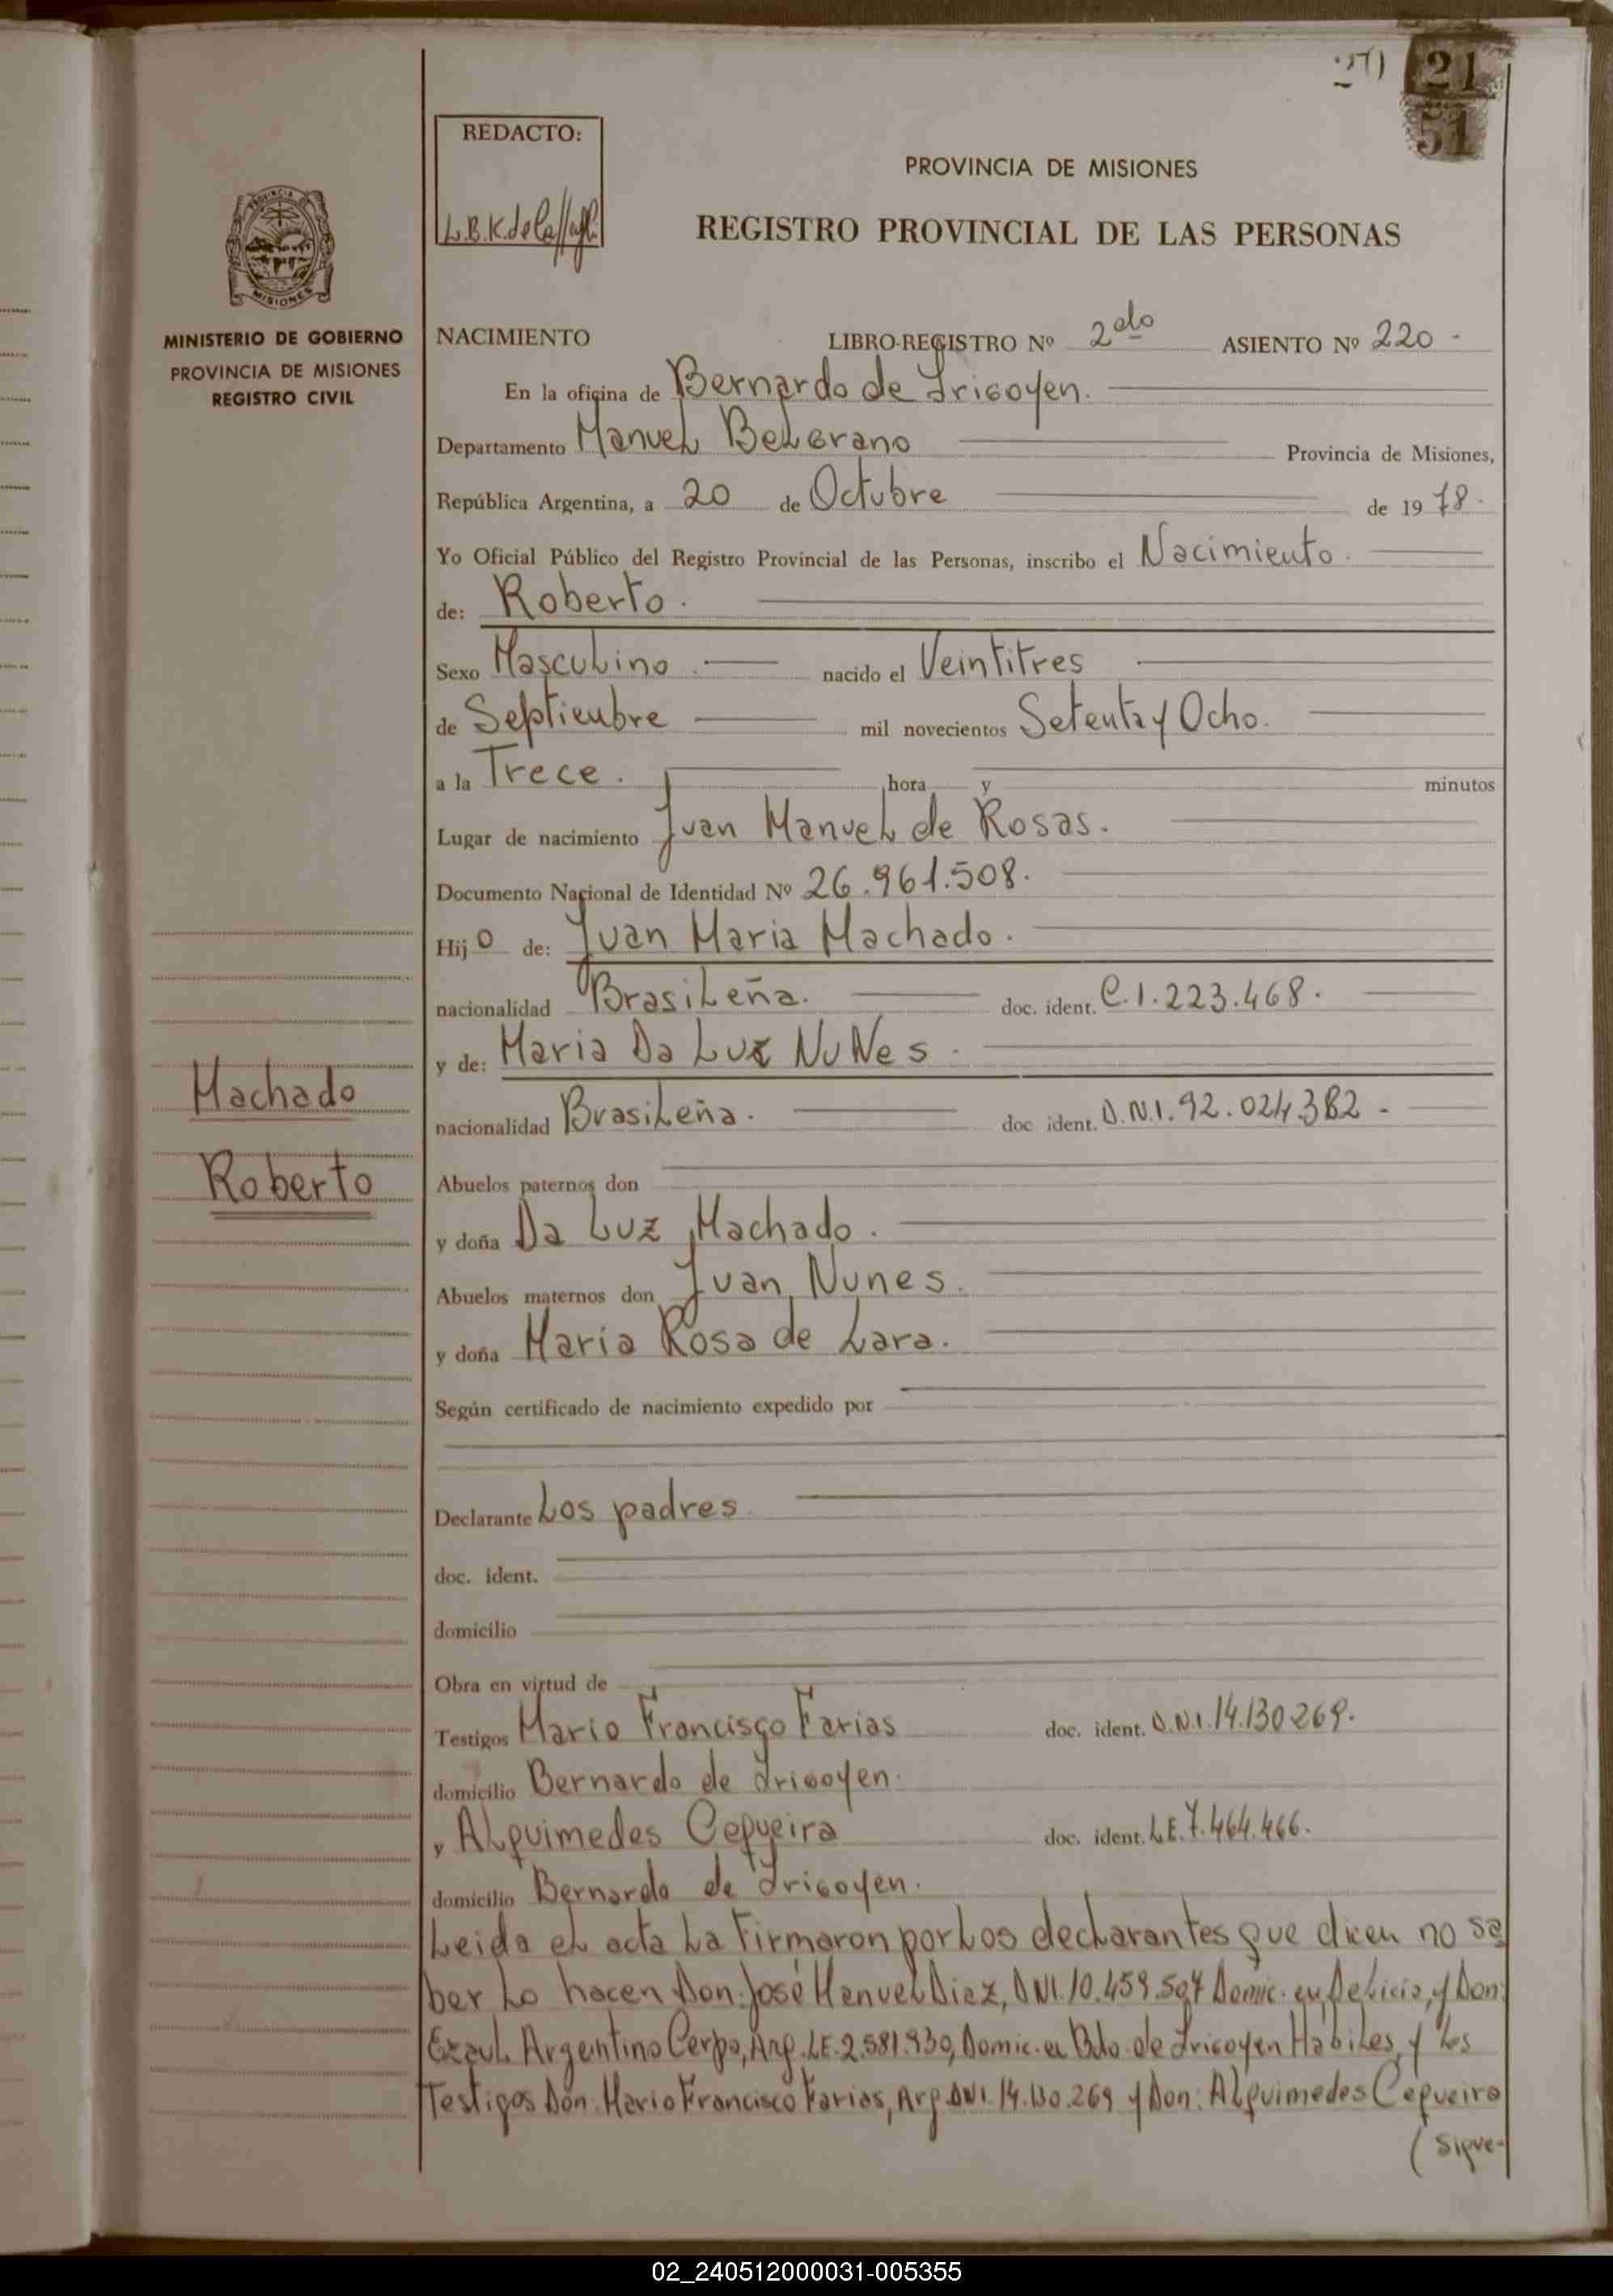 21
51
REDACTO:
PROVINCIA DE MISIONES
REGISTRO PROVINCIAL DE LAS PERSONAS
MINISTERIO DE GOBIERNO
PROVINCIA DE MISIONES
REGISTRO CIVIL
NACIMIENTO LIBRO-REGISTRO Nº 2do ASIENTO Nº 220 -
En la oficina de Bernardo de Irigoyen.
Departamento Manuel Belgrano Provincia de Misiones,
República Argentina, a 20 de Octubre de 1978.
Yo Oficial Público del Registro Provincial de las Personas, inscribo el Nacimiento.
de: Roberto.
Sexo Masculino. nacido el Veintitres
de Septiembre mil novecientos Setenta y Ocho.
a la Trece. hora y minutos
Lugar de nacimiento Juan Manuel de Rosas.
Documento Nacional de Identidad Nº 26.961.508.
Hijo de: Juan Maria Machado.
nacionalidad Brasileña. doc. ident. C.1.223.468.
y de: Maria Da Luz NuNes.
nacionalidad Brasileña. doc ident. D.N.I. 92.024.382 -
Machado
Roberto
Abuelos paternos don
y doña Da Luz Machado.
Abuelos maternos don Juan Nunes.
y doña Maria Rosa de Lara.
Según certificado de nacimiento expedido por
Declarante Los padres
doc. ident.
domicilio
Obra en virtud de
Testigos Mario Francisco Farias doc. ident. D.N.I. 14.130.269.
domicilio Bernardo de Irigoyen.
y Alquimedes Cequeira doc. ident. L.E. 7.464.466.
domicilio Bernardo de Irigoyen.
Leida el acta la Firmaron por Los declarantes que dicen no sa
ber Lo hacen Don: José Manuel Diaz, DNI. 10.459.507 Domic. en Delicia, y Don:
Argentino Cerpa, Arg. LE. 2.581.930, Domic. en Bdo. de Irigoyen Hábiles, y Los
Testigos Don: Mario Francisco Farias, Arg. DNI. 14.130.269 y Don: Alquimedes Cequeira
(Sigue-
02_240512000031-005355